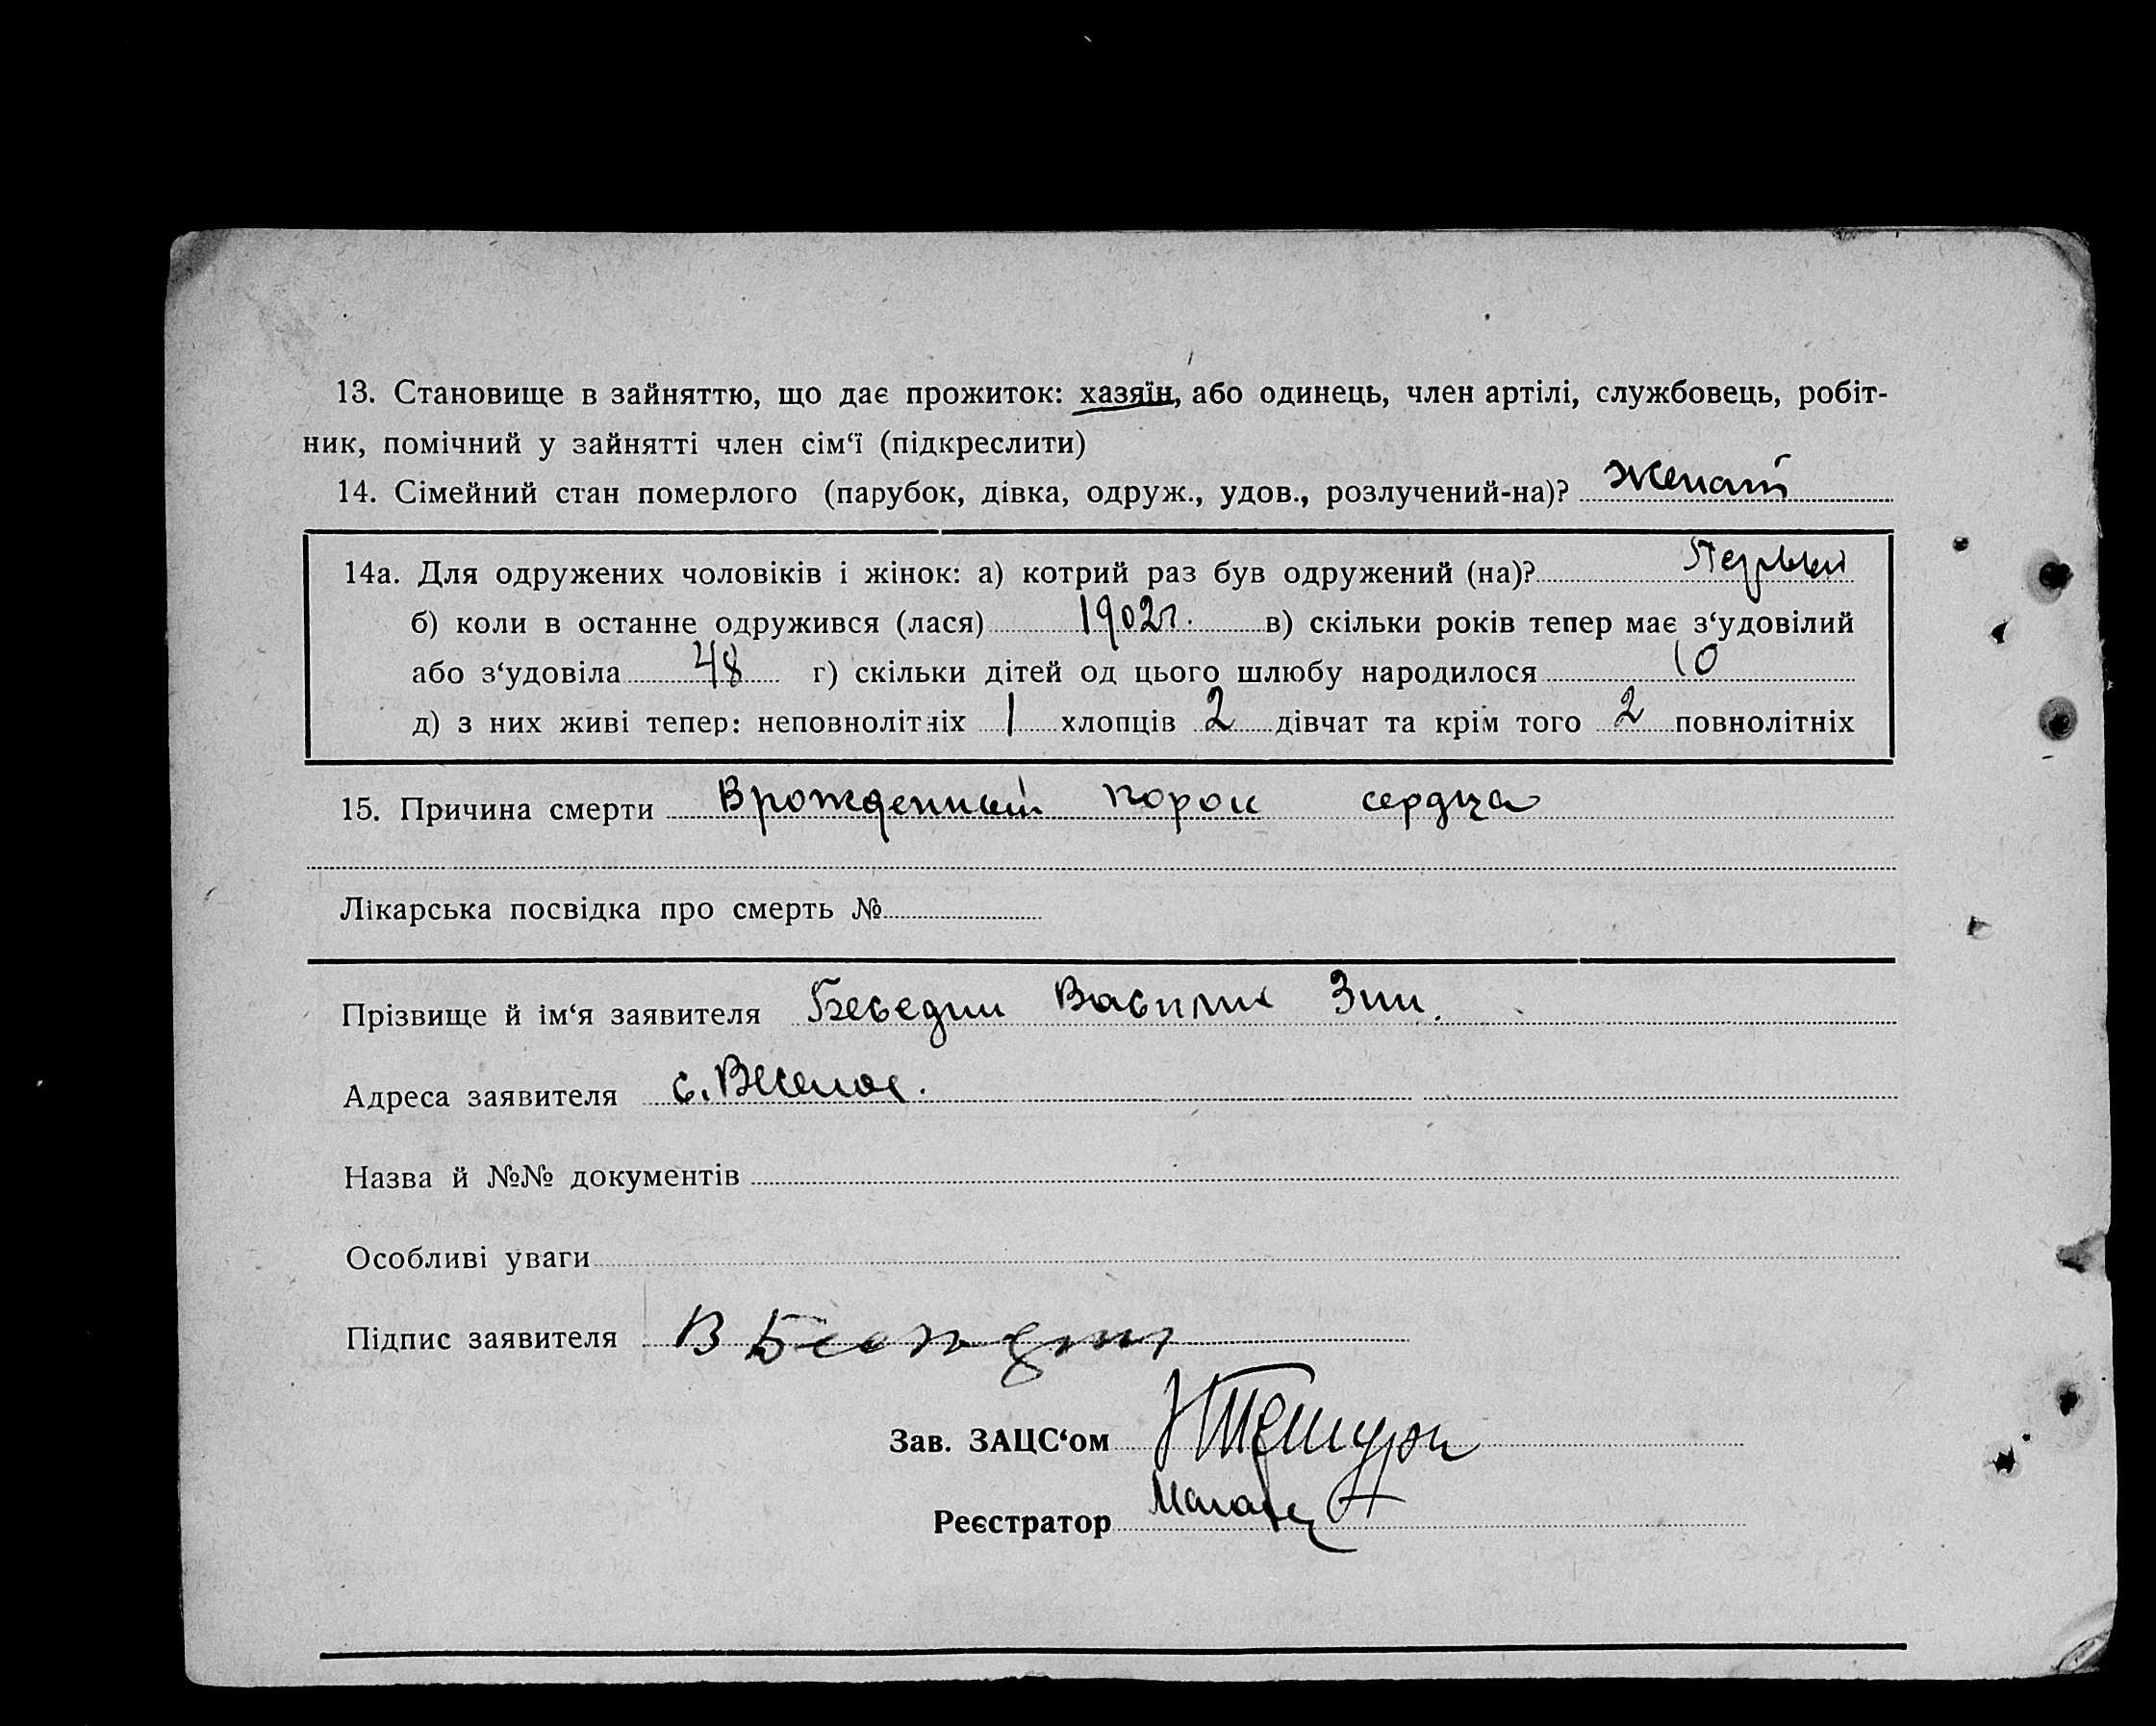 13. Становище в зайняттю, що дає прожиток: хазяїн, або одинець, член артілі, службовець, робіт-
ник, помічний у зайнятті член сім‘ї (підкреслити)
14. Сімейний стан померлого (парубок, дівка, одруж., удов., розлучений-на)? Женат
14а. Для одружених чоловіків і жінок: а) котрий раз був одружений (на)? Первый
б) коли в останне одружився (лася) 1902г. в) скільки років тепер має з‘удовілий
або з‘удовіла 48 г) скільки дітей од цього шлюбу народилося 10
д) з них живі тепер: неповнолітніх 1 хлопців 2 дівчат та крім того 2 повнолітніх
15. Причина смерти Врожденный порок сердца
Лікарська посвідка про смерть №
Прізвище й ім‘я заявителя Беседин Василий Зин.
Адреса заявителя с. Веселое.
Назва й №№ документів
Особливі уваги
Підпис заявителя В Беседин
Зав. ЗАЦС‘ом
Реєстратор